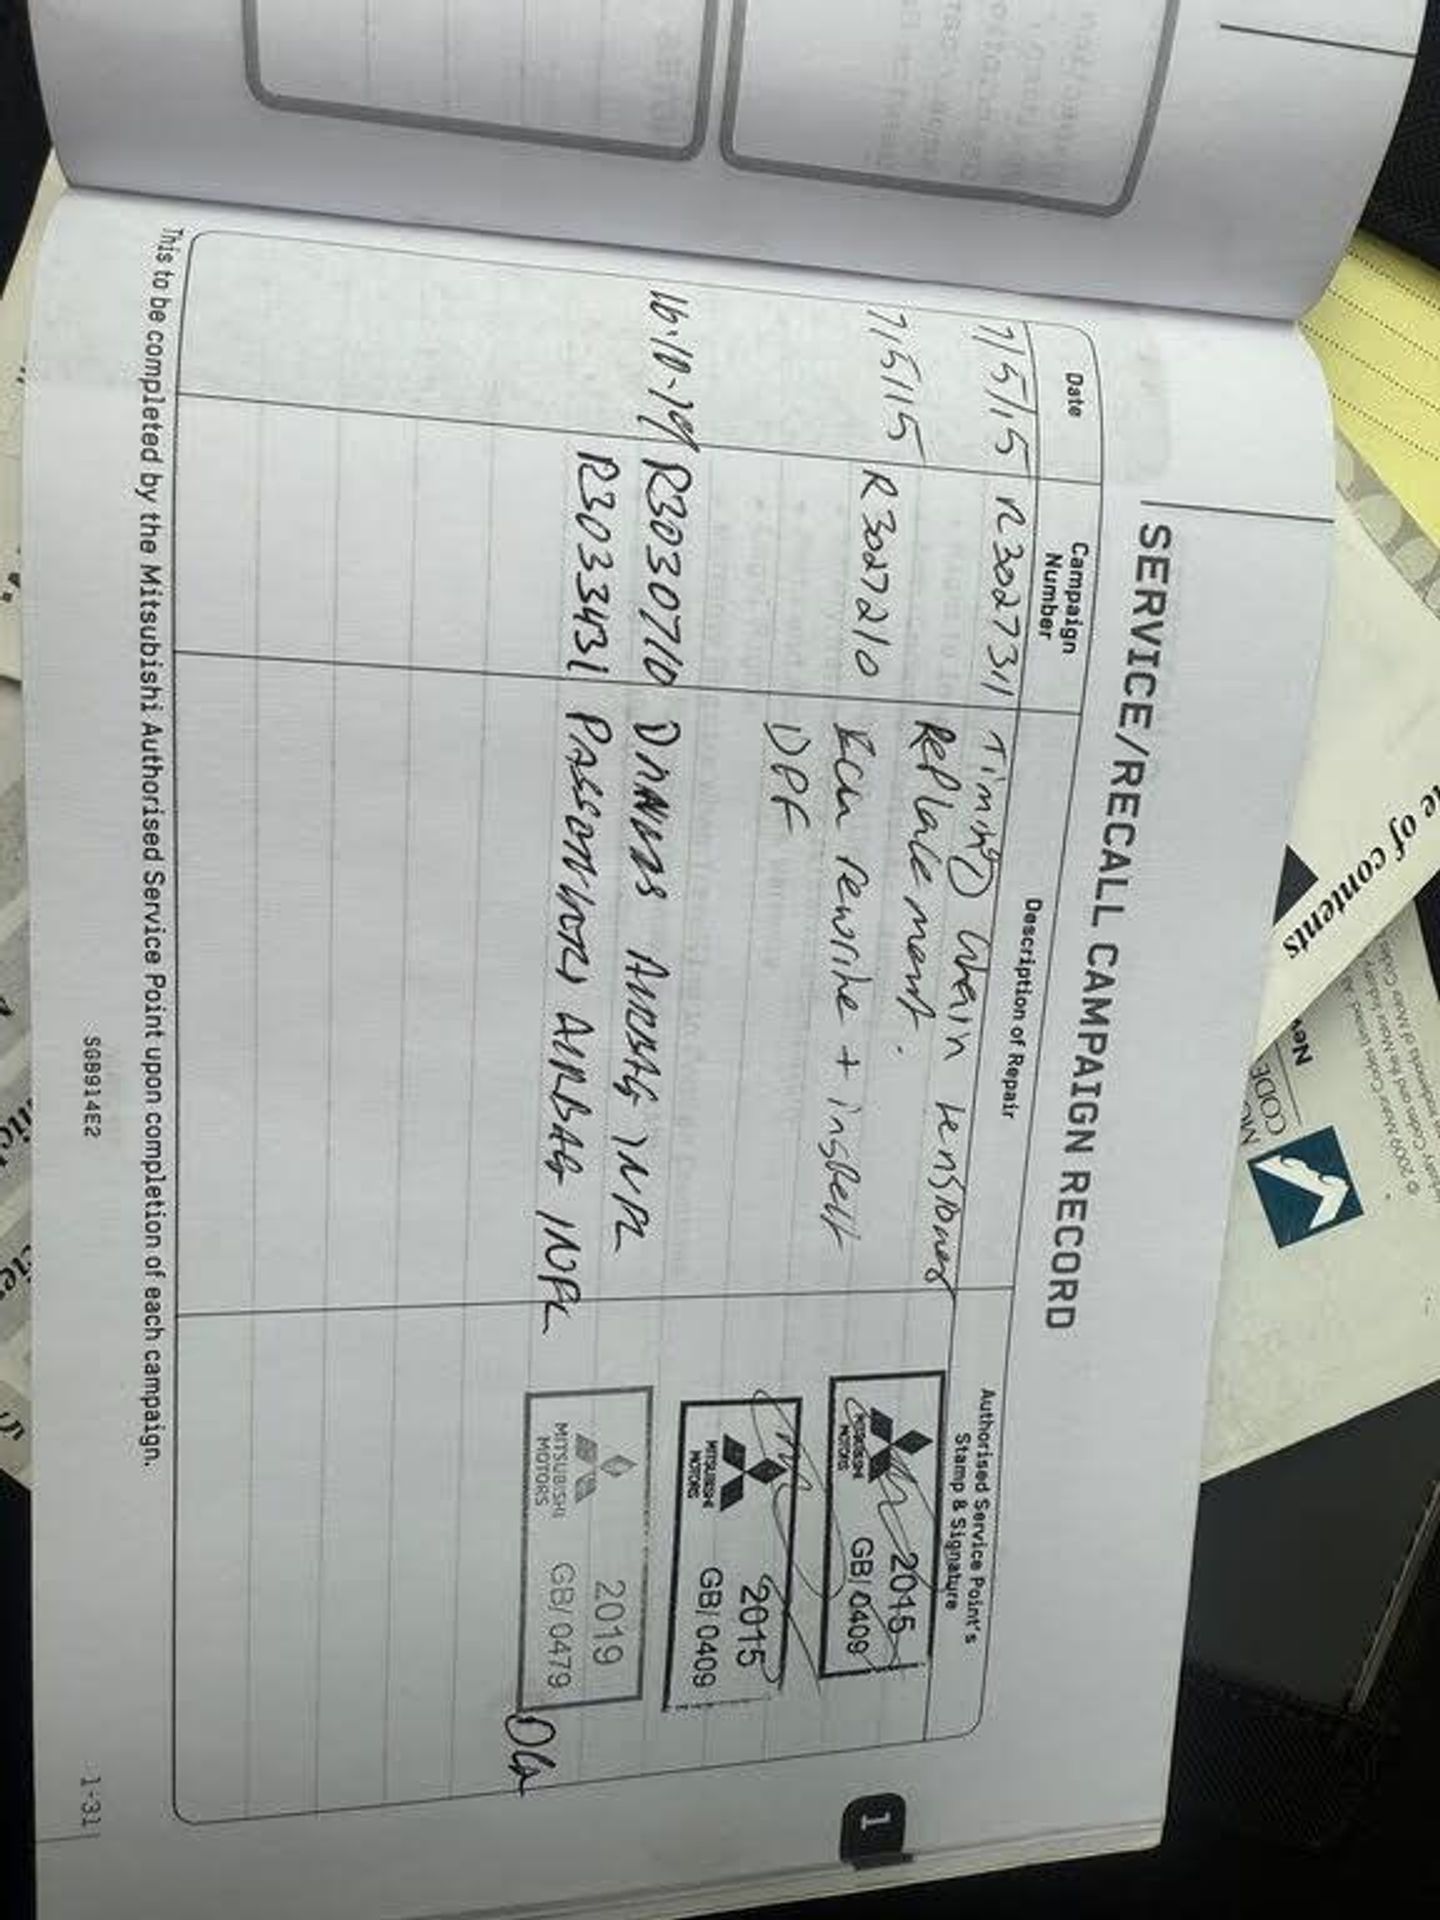 SERVICE/RECALL CAMPAIGN RECORD
Date
Campaign
Number
Description of Repair
Authorised Service Point's
Stamp & Signature
7/5/15 R3027311 Timing Chain tensioner
Replacement.
7/5/15 R3027210 Ecu rewrite + inspect
DPF
16.10.19 R3030710 DRIVERS AIRBAG INFL
R3033431 PASSENGERS AIRBAG INFL
MITSUBISHI
MOTORS
2015
GB/0409
MITSUBISHI
MOTORS
2015
GB/0409
MITSUBISHI
MOTORS
2019
GB/0479
This to be completed by the Mitsubishi Authorised Service Point upon completion of each campaign.
SGB914E2
1-31
1
e of contents
CODE